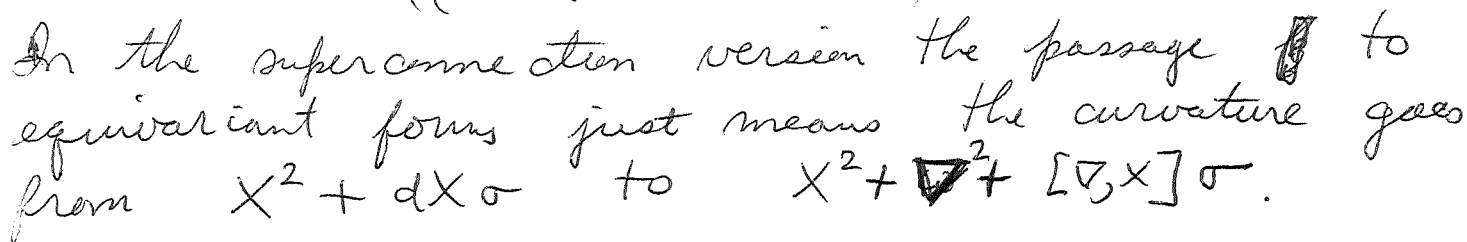 In the superconnection version the passage to
equivariant forms just means the curvature goes
from X² + dXσ to X² + ∇² + [∇,X]σ.